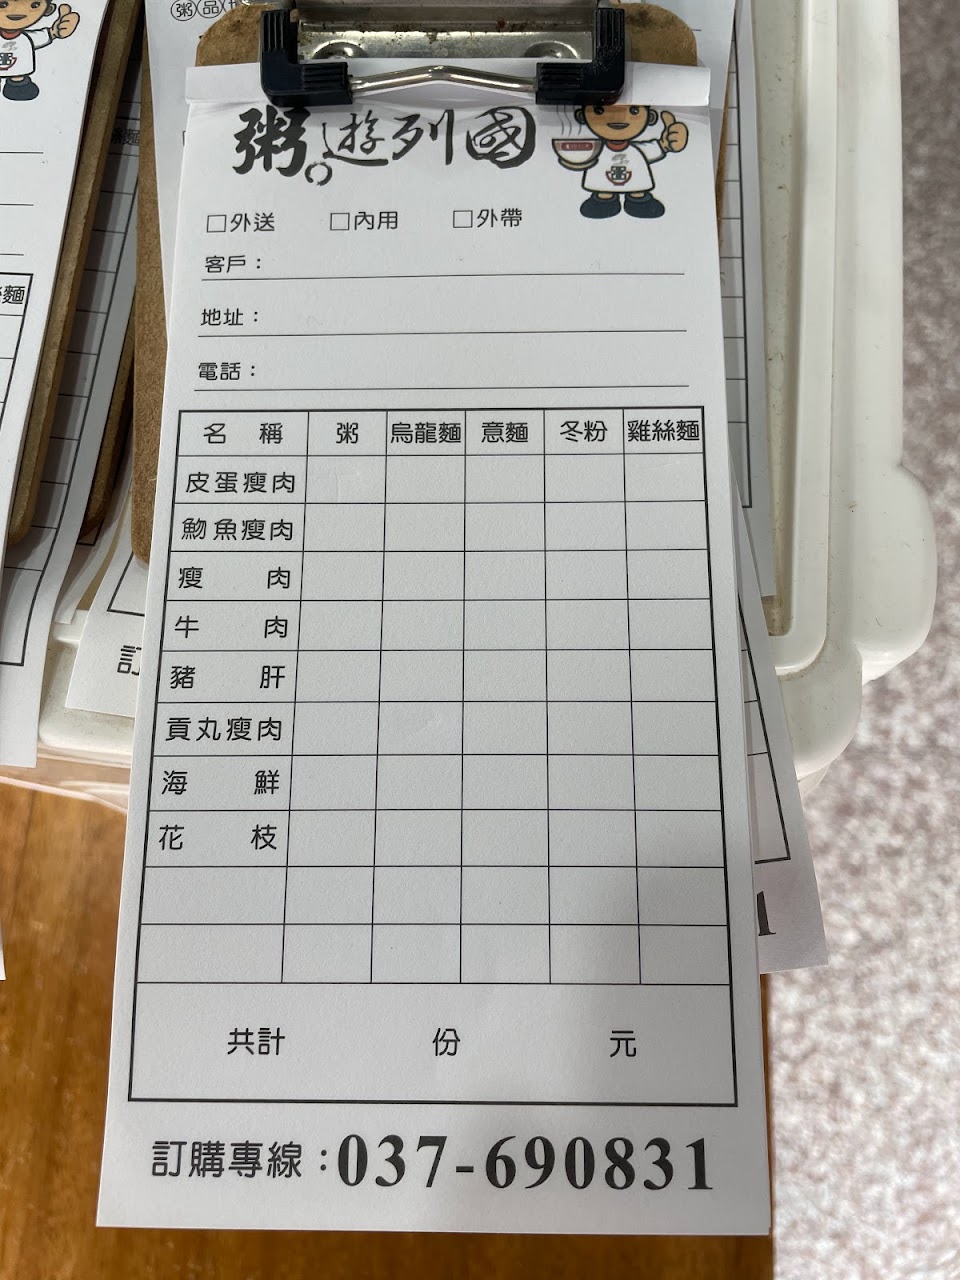 粥品
粥遊列國
粥
粥
□外送 □內用 □外帶
客戶：
地址：
電話：
名稱 粥 烏龍麵 意麵 冬粉 雞絲麵
皮蛋瘦肉
魩魚瘦肉
瘦肉
牛肉
豬肝
貢丸瘦肉
海鮮
花枝
共計 份 元
訂購專線：037-690831
麵
訂
1